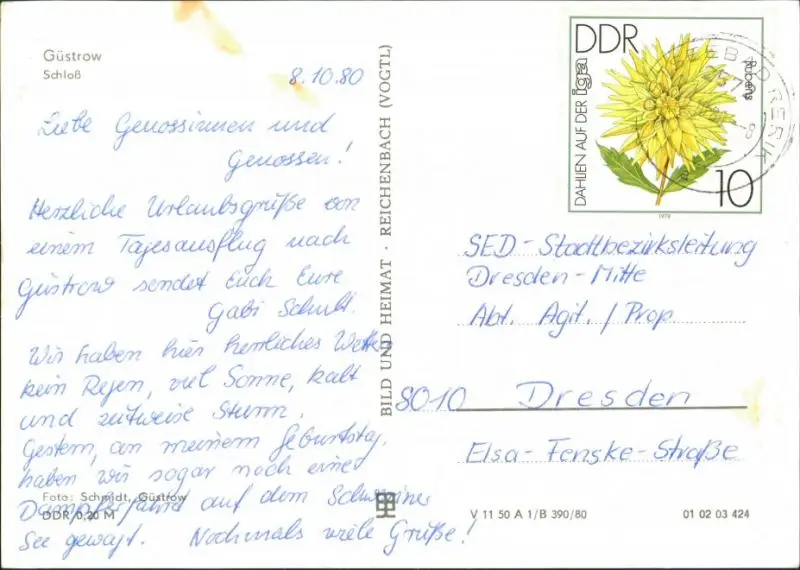 Güstrow
Schloß
8.10.80
Liebe Genossinnen und
Genossen!
Herzliche Urlaubsgrüße von
einem Tagesausflug nach
Güstrow sendet Euch Eure
Gabi
Wir haben hier herrliches Wetter
kein Regen, viel Sonne, kalt
und zeitweise Sturm.
Gestern, an meinem Geburtstag,
haben wir sogar noch eine
Dampferfahrt auf dem Schweriner
See gewagt. Nochmals viele Grüße!
Foto: Schmidt, Güstrow
DDR 0,20 M
BILD UND HEIMAT · REICHENBACH (VOGTL)
DDR
DAHLIEN AUF DER iga
Rubens
10
1979
SEEBAD RERIK
SED-Stadtbezirksleitung
Dresden-Mitte
Abt. Agit./Prop.
8010 Dresden
Elsa-Fenske-Straße
V 11 50 A 1/B 390/80
01 02 03 424